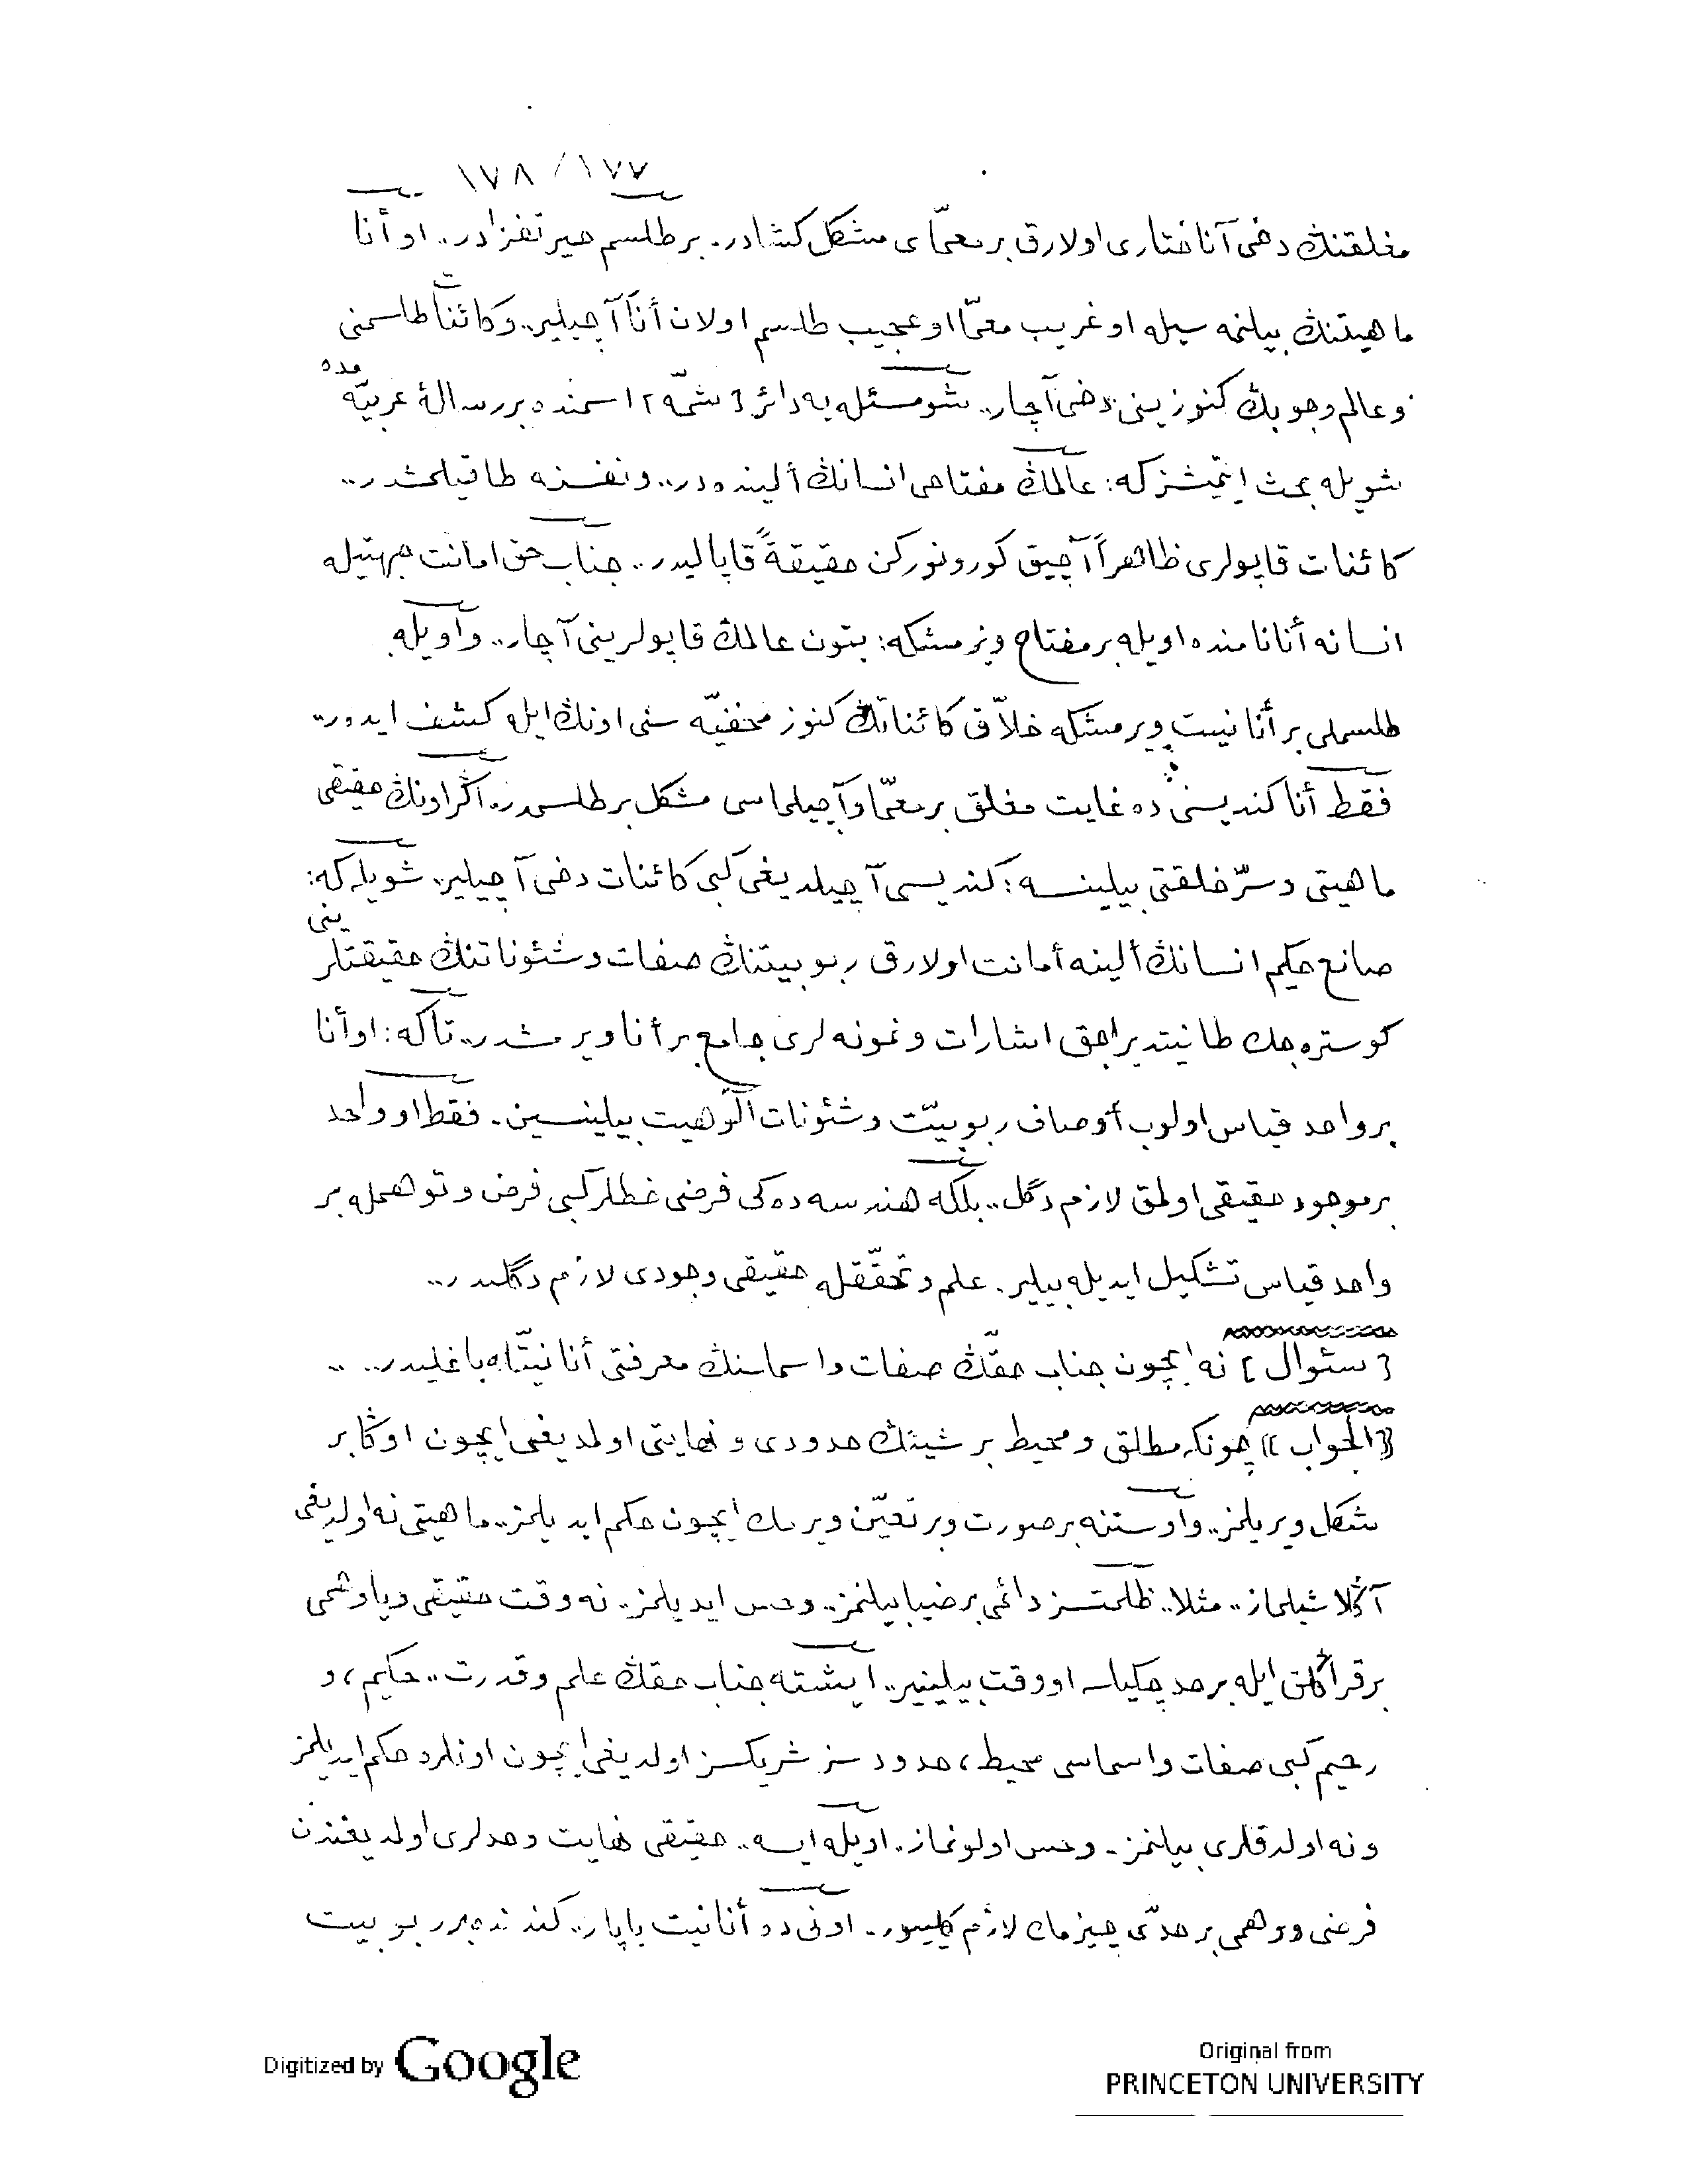 ١٧٧/ ١٧٨
مغلقنڭ دخى آناختارى اولارق بر معمّاى مشكل كشادر. بر طلسم حيرتفزادر.. او أنا
ماهيتنڭ بيلنمه سيله او غريب معمّا او عجيب طلسم اولان أنا آچيلير.. وكائنات طلسمنى
وعالم وجوبڭ كنوزينى دخى آچار.. شو مسئله يه دائر [شمّه] اسمنده بر رسالۀ عربيّه مده
شويله بحث ايتمشزكه: عالمڭ مفتاحى انسانڭ ألينده در.. ونفسنه طاقيلمشدر..
كائنات قاپولرى ظاهراً آچيق كورونوركن حقيقةً قاپاليدر.. جناب حق امانت جهتيله
انسانه أنا نامنده اويله بر مفتاح ويرمشكه: بتون عالمڭ قاپولرينى آچار.. واويله
طلسملى بر أنانيت ويرمشكه خلاّق كائناتڭ كنوز مخفيّه سنى اونڭ ايله كشف ايدر..
فقط أنا كنديسى ده غايت مغلق بر معمّا وآچيلماسى مشكل بر طلسمدر. اگر اونڭ حقيقى
ماهيتى وسرّ خلقتى بيلينسه: كنديسى آچيلديغى كبى كائنات دخى آچيلير. شويله كه:
صانع حكيم انسانڭ ألينه أمانت اولارق ربوبيتنڭ صفات وشئوناتنڭ حقيقتلرينى
كوستره جك طانيتديراجق اشارات ونمونه لرى جامع بر أنا ويرمشدر.. تاكه: او أنا
بر واحد قياس اولوب أوصاف ربوبيّت وشئونات الوهيت بيلينسين. فقط او واحد
بر موجود حقيقى اولمق لازم دگل.. بلكه هندسه ده كى فرضى خطلر كبى فرض وتوهمله بر
واحد قياس تشكيل ايديله بيلير. علم وتحقّقله حقيقى وجودى لازم دگلدر..
[سئوال] نه ايچون جناب حقّڭ صفات واسماسنڭ معرفتى أنانيّته باغليدر.. ..
((الجواب)) چونكه مطلق ومحيط بر شيئڭ حدودى ونهايتى اولمديغى ايچون اوڭا بر
شكل ويريلمز.. واوستنه بر صورت وبر تعيّن ويرمك ايچون حكم ايديلمز.. ماهيتى نه اولديغى
آڭلاشيلماز.. مثلا.. ظلمتسز دائمى بر ضيا بيلنمز.. وحس ايديلمز.. نه وقت حقيقى ويا وهمى
بر قراڭلق ايله بر حد چكيلسه او وقت بيلينير.. ايشته جناب حقڭ علم وقدرت.. حكيم، و
رحيم كبى صفات واسماسى محيط، حدودسز شريكسز اولديغى ايچون اونلره حكم ايديلمز
ونه اولدقلرى بيلنمز. وحس اولونماز. اويله ايسه.. حقيقى نهايت وحدلرى اولمديغندن
فرضى ووهمى بر حدّى چيزمك لازم كلييور.. اونى ده أنانيت ياپار.. كندنده بر ربوبيت
Digitized by Google
Original from
PRINCETON UNIVERSITY